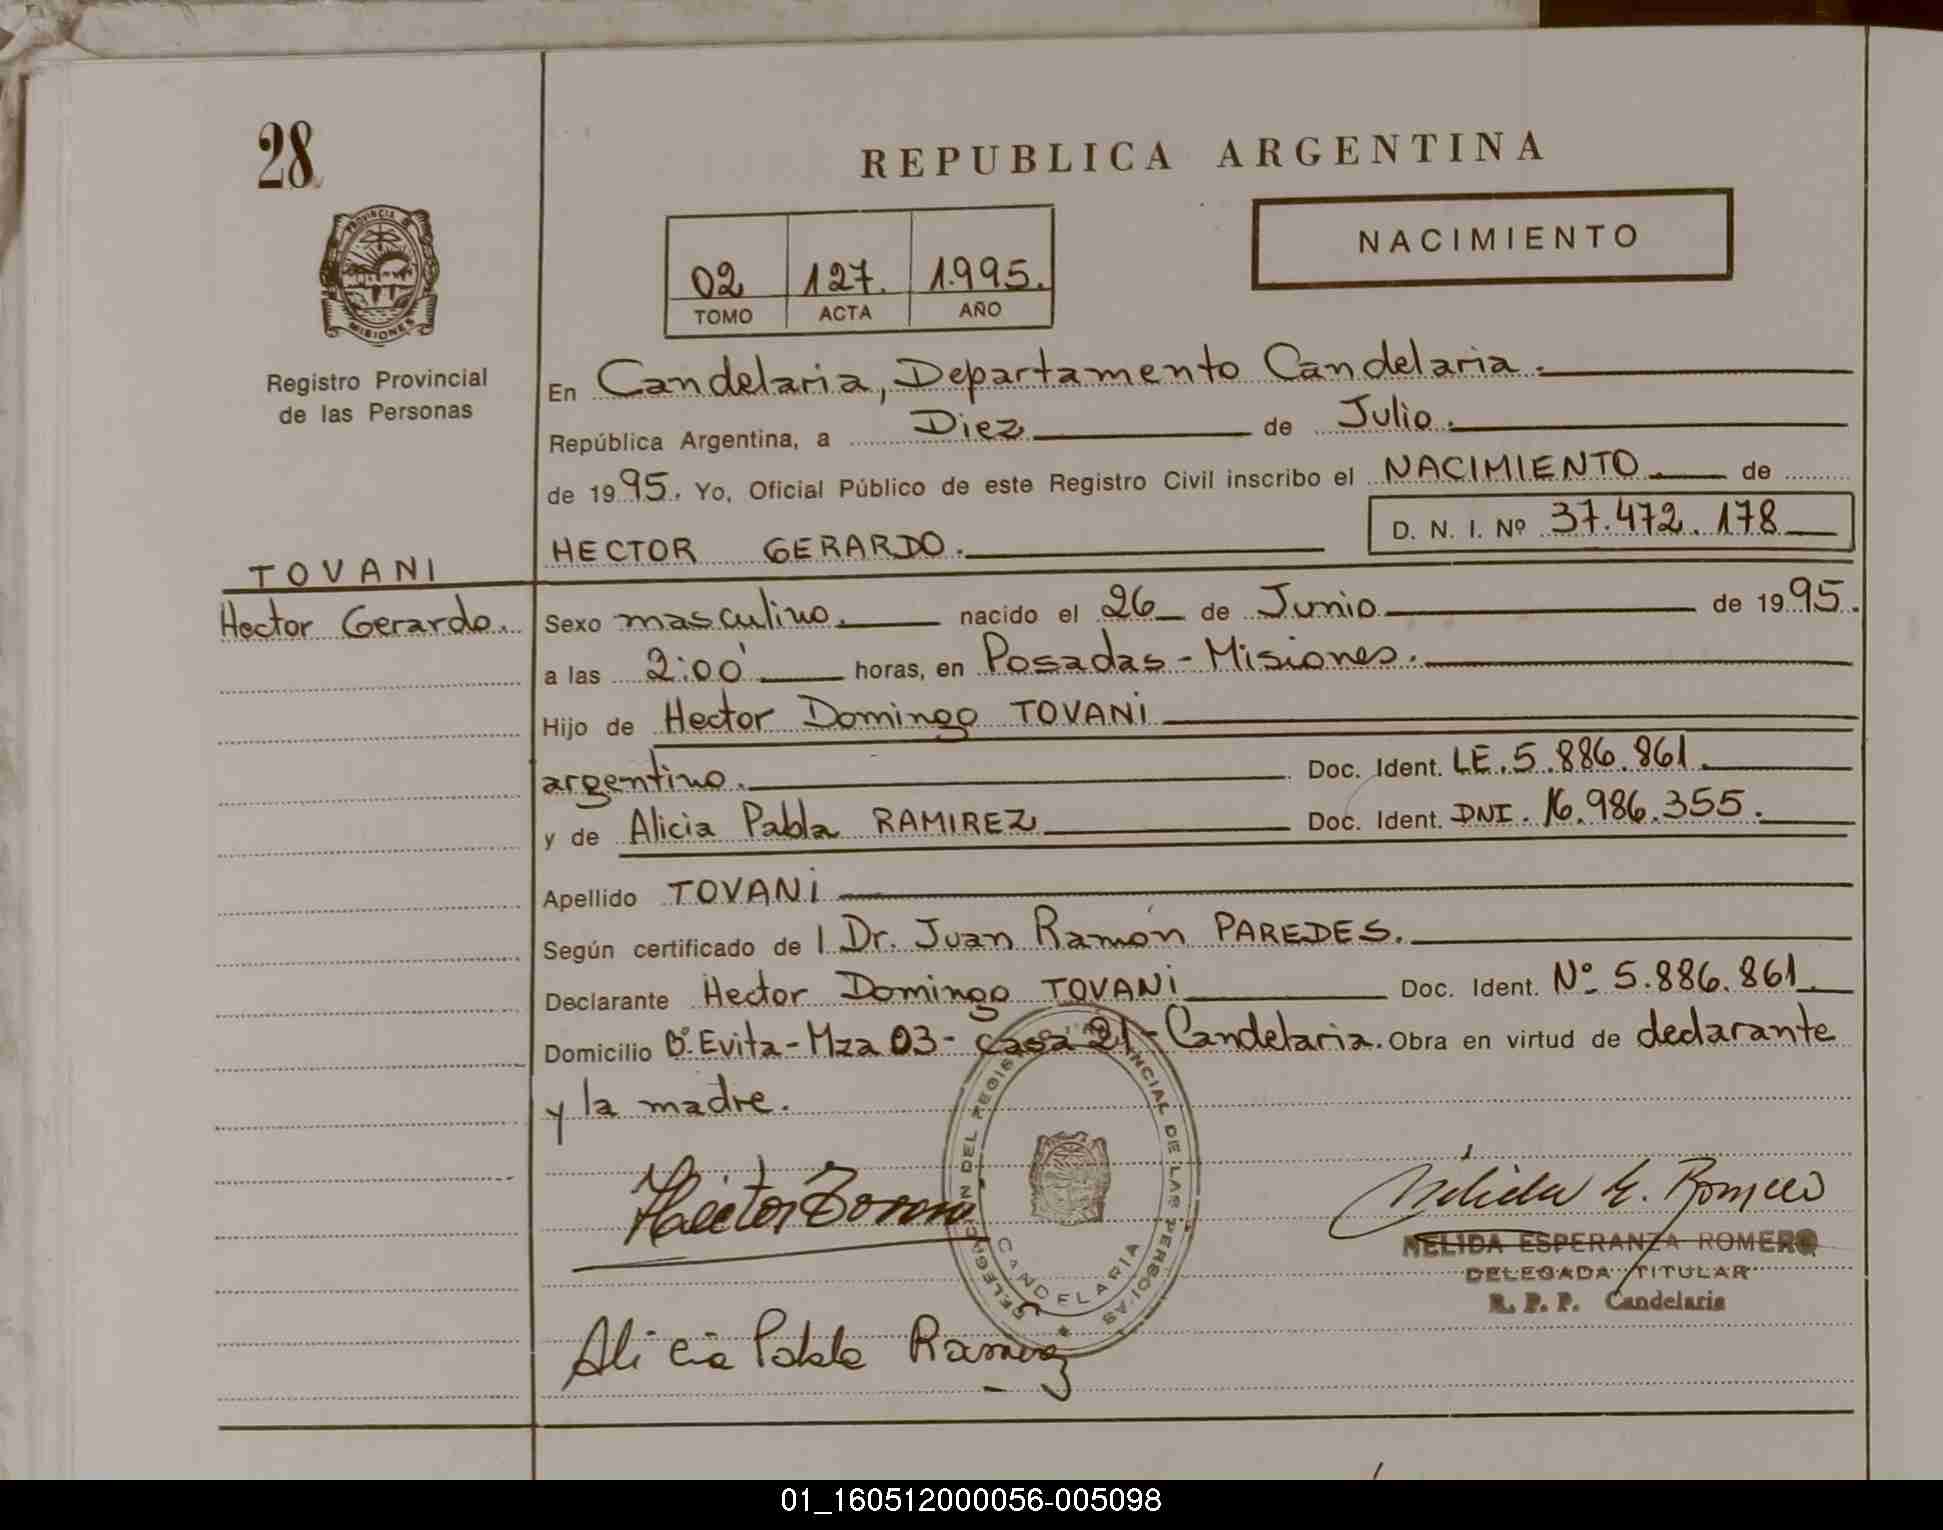 28
REPUBLICA ARGENTINA
PROVINCIA DE
MISIONES
Registro Provincial
de las Personas
02 127. 1.995.
TOMO ACTA AÑO
NACIMIENTO
En Candelaria, Departamento Candelaria.
República Argentina, a Diez de Julio.
de 1995. Yo, Oficial Público de este Registro Civil inscribo el NACIMIENTO. de
HECTOR GERARDO. D. N. I. Nº 37.472.178
TOVANI
Hector Gerardo.
Sexo masculino. nacido el 26 de Junio de 1995.
a las 2:00 horas, en Posadas - Misiones.
Hijo de Hector Domingo TOVANI
argentino. Doc. Ident. LE. 5.886.861.
y de Alicia Pabla RAMIREZ Doc. Ident. DNI. 16.986.355.
Apellido TOVANI
Según certificado de l Dr. Juan Ramón PAREDES.
Declarante Hector Domingo TOVANI Doc. Ident. Nº 5.886.861
Domicilio Bº Evita - Mza 03 - casa 21 - Candelaria. Obra en virtud de declarante
y la madre.
DELEGACION DEL REGISTRO PROVINCIAL DE LAS PERSONAS
CANDELARIA
Hector
Nélida E. Romero
NELIDA ESPERANZA ROMERO
DELEGADA TITULAR
R. P. P. Candelaria
Alicia Pabla Ramirez
01_160512000056-005098